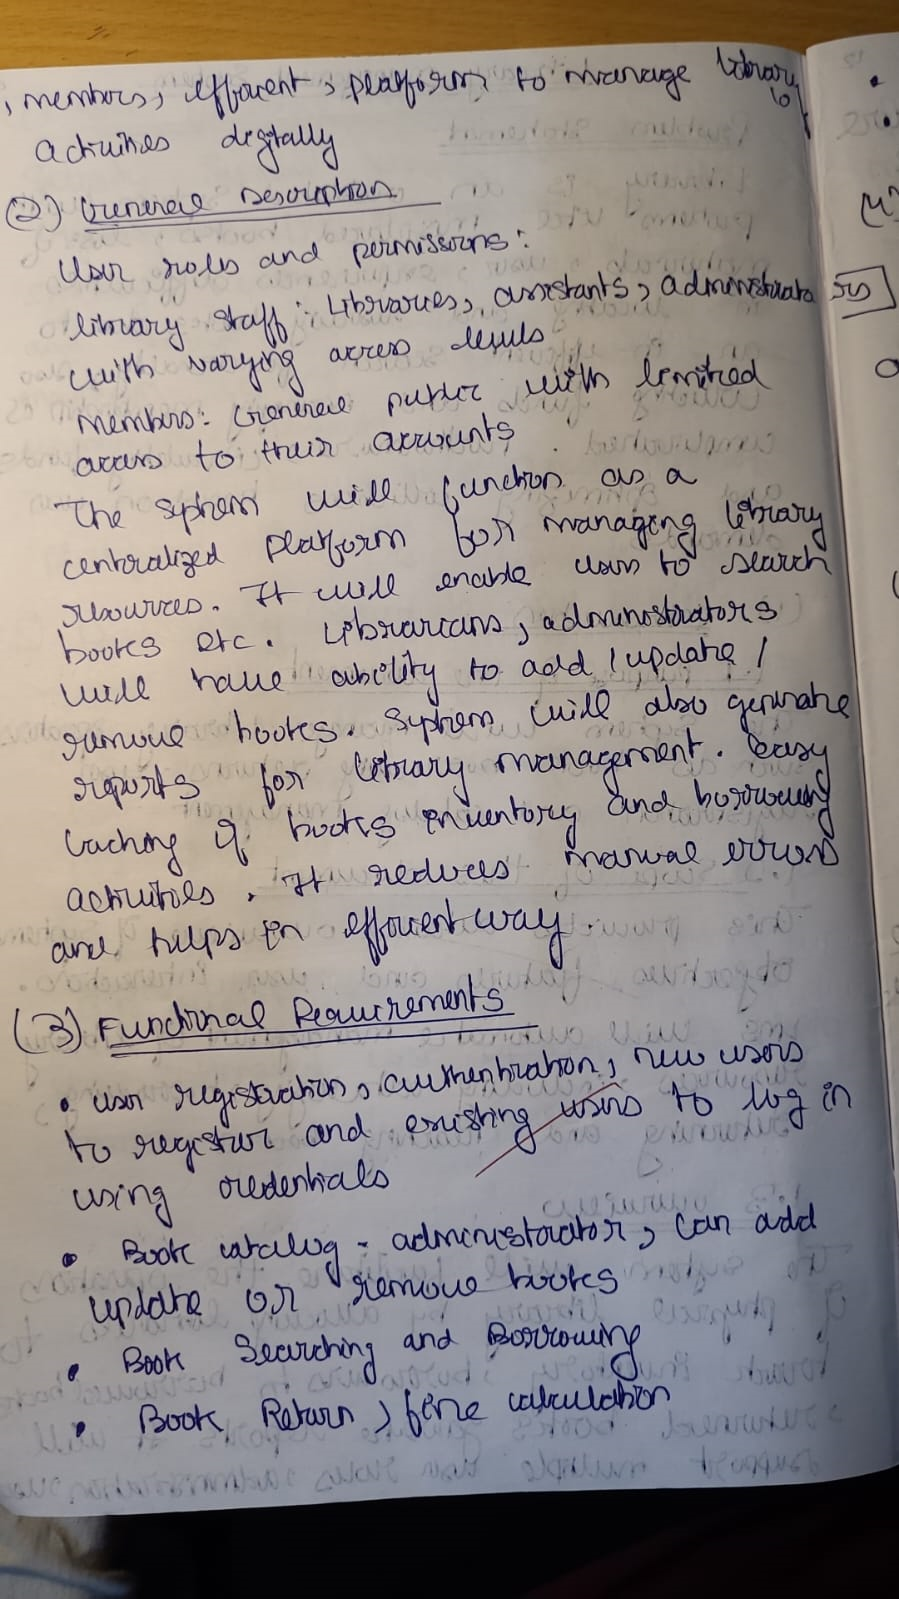 , members, efficient, platform to manage library
activities digitally
(2) General Description
User roles and permissions:
library staff: Libraries, assistants, administrato
with varying access levels
Members: General public with limited
access to their accounts
The system will function as a
centralized platform for managing library
resources. It will enable users to search
books etc. Librarians, administrators
will have ability to add / update /
remove books. System will also generate
reports for library management. Easy
traching of books inventory and borrowing
activities. It reduces manual errors
and helps in efficient way.
(3) Functional Requirements
• user registration, authentication, new users
to register and existing users to log in
using credentials
• Book catalog - administrator, can add
update or remove books
• Book Searching and Borrowing
• Book Return, fine calculation